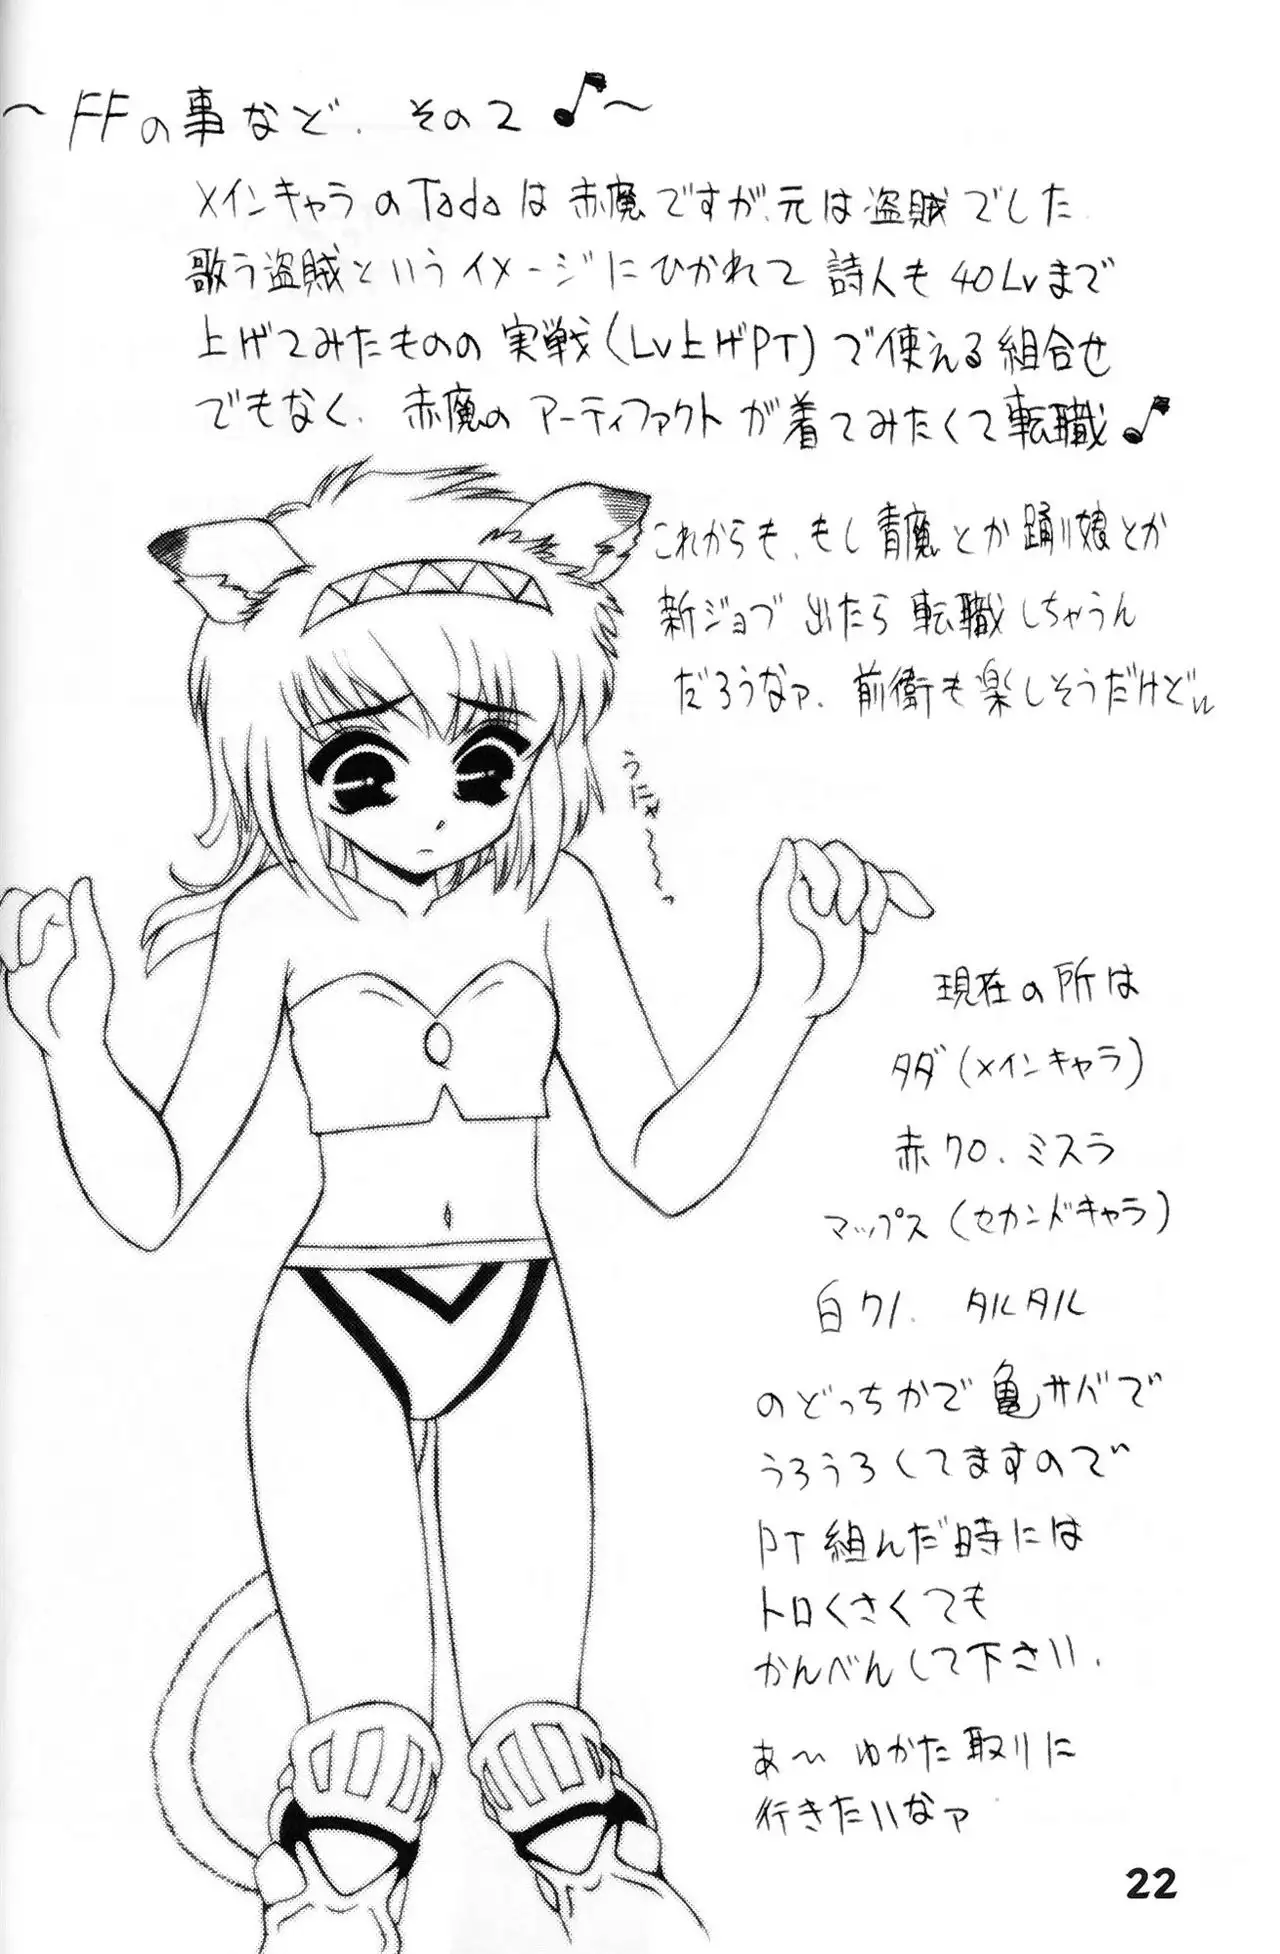 ～FFの事など.その2♪～
メインキャラのTadaは赤魔ですが、元は盗賊でした.
歌う盗賊というイメージにひかれて詩人も40Lvまで
上げてみたものの実戦(Lv上げPT)で使える組合せ
でもなく.赤魔のアーティファクトが着てみたくて転職♪
これからも、もし青魔とか踊り娘とか
新ジョブ出たら転職しちゃうん
だろうなァ.前衛も楽しそうだけど
うにゃ～～～っ
現在の所は
タダ(メインキャラ)
赤クロ.ミスラ
マップス(セカンドキャラ)
白クノ.タルタル
のどっちかで亀サバで
うろうろしてますので
PT組んだ時には
トロくさくても
かんべんして下さい.
あ～ゆかた取りに
行きたいなァ
22